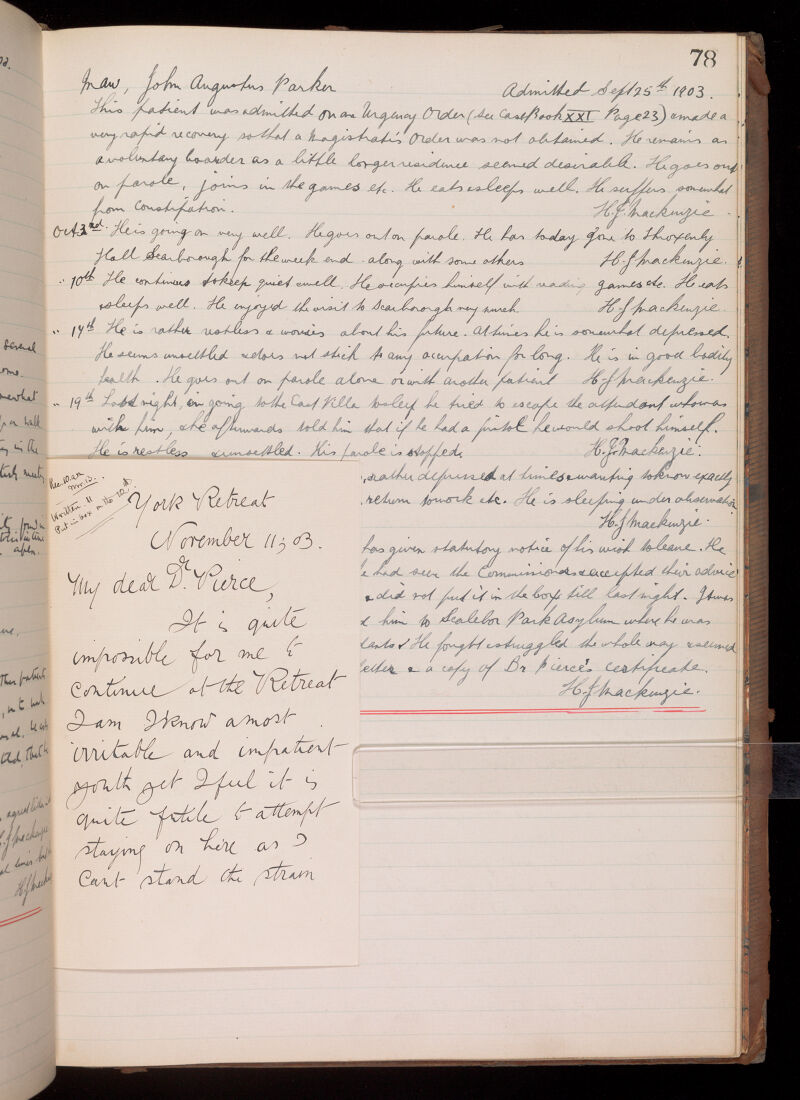 78
Maw, John Augustus Parker
Admitted Sept 25th 1903.
This patient was admitted on an Urgency Order (see Case Book XXI Page 23) & made a
very rapid recovery so that a Magistrate's Order was not obtained. He remains as
a voluntary boarder as a little longer residence seemed desirable. He goes out
on parole, joins in the games etc. He eats & sleeps well. He suffers somewhat
from Constipation. H.J. Mackenzie.
Oct 3rd. He is going on very well. He goes out on parole. He has today gone to Throxenby
Hall Scarborough for the week end along with some others H.J. Mackenzie.
" 10th He continues to keep quiet & well. He occupies himself with reading games etc. He eats
& sleeps well. He enjoyed the visit to Scarborough very much. H.J. Mackenzie.
" 14th He is rather restless & worries about his future. At times he is somewhat depressed.
He seems unsettled & does not stick to any occupation for long. He is in good bodily
health. He goes out on parole alone or with another patient H.J. Mackenzie.
" 19th Last night, in going to the East Villa to sleep he tried to escape the attendant who was
with him, & he afterwards told him that if he had a pistol he would shoot himself.
He is restless & unsettled. His parole is stopped. H.J. Mackenzie.
rather depressed at times & wanting to know exactly
return to work etc. He is sleeping under observation
H.J. Mackenzie.
has given statutory notice of his wish to leave. He
he had seen the Commissioners & accepted their advice
& did not put it in the box till last night. I
him to Scalebor Park Asylum where he was
He fought & struggled the whole way & seemed
letter & a copy of Dr Pierce's certificate.
H.J. Mackenzie.
Rec 10 am
Nov. 12.
Written 11
Put in box on the 12th
York Retreat
November 11, 03.
My dear Dr. Pierce,
It is quite
impossible for me to
continue at the Retreat
I am I know a most
irritable and impatient
youth yet I feel it is
quite futile to attempt
staying on here as I
cant stand the strain
several
somewhat
H.J. Mackenzie